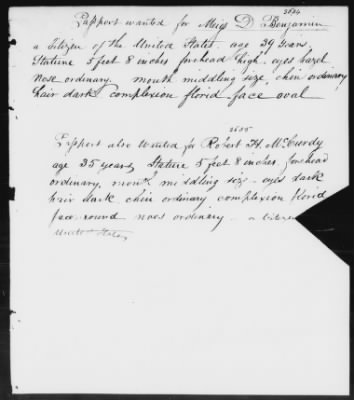 3634
Passport wanted for Meigs D. Benjamin
a Citizen of the United States. age 39 Years,
Stature 5 feet 8 inches forehead high. eyes hazel
nose ordinary. mouth middling size, chin ordinary
hair dark complexion florid face oval
3635
Passport also Wanted for Robert H. McCurdy
age 35 years, Stature 5 feet 8 inches, forehead
ordinary, mouth middling size - eyes dark
hair dark chin ordinary complexion florid
face round noes ordinary - a Citizen
United States,